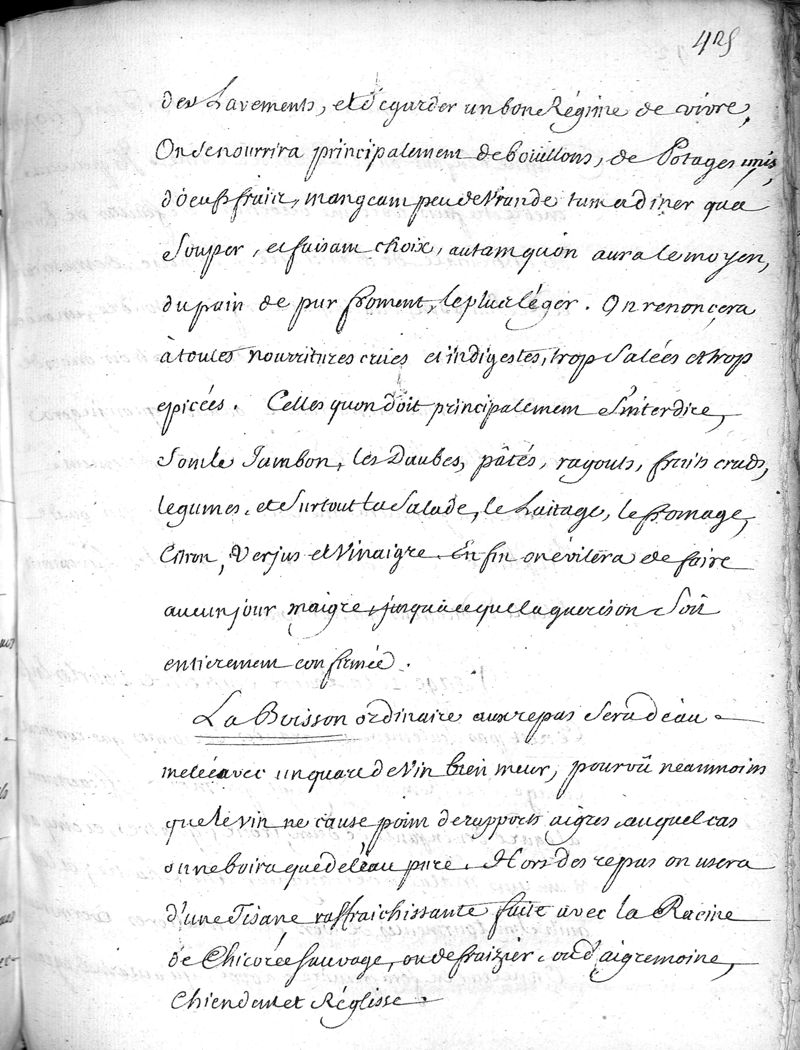 425
des Lavements, et de garder un bon Régime de vivre,
On se nourrira principalement de bouillons, de Potages unis,
d'oeufs frais, mangeant peu de viande tant a diner qu'a
Souper, et faisant choix, autant qu'on aura le moyen,
du pain de pur froment, le plus léger. On renoncera
à toutes nourritures crües et indigestes, trop Salées et trop
epicées. Celles qu'on doit principalement S'interdire,
Sont le Jambon, les Daubes, pâtés, ragouts, fruits cruds,
legumes, et Surtout la Salade, le Laitage, le fromage,
Citron, Verjus et Vinaigre. En fin on évitera de faire
aucun jour maigre, jusqu'à ce que la guerison Soit
entierement confirmée.
La Boisson ordinaire aux repas Sera d'eau
melée avec un quart de Vin bien meur, pourvû neanmoins
que le vin ne cause point de rapports aigres, auquel cas
on ne boira que de l'eau pure. Hors des repas on usera
d'une Tisane raffraichissante faite avec la Racine
de Chicorée Sauvage, ou de fraizier, ou d'aigremoine,
Chiendent et Réglisse.